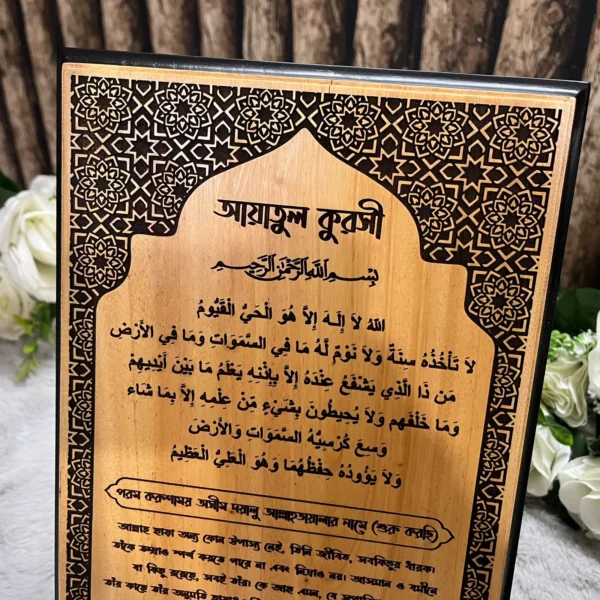 আয়াতুল কুরসী
بِسْمِ اللهِ الرَّحْمٰنِ الرَّحِيْمِ
اللهُ لاَ إِلَـهَ إِلاَّ هُوَ الْحَيُّ الْقَيُّومُ
لاَ تَأْخُذُهُ سِنَةٌ وَلاَ نَوْمٌ لَّهُ مَا فِي السَّمَوَاتِ وَمَا فِي الأَرْضِ
مَن ذَا الَّذِي يَشْفَعُ عِنْدَهُ إِلاَّ بِإِذْنِهِ يَعْلَمُ مَا بَيْنَ أَيْدِيهِمْ
وَمَا خَلْفَهُم وَلاَ يُحِيطُونَ بِشَيْءٍ مِّنْ عِلْمِهِ إِلاَّ بِمَا شَاء
وَسِعَ كُرْسِيُّهُ السَّمَوَاتِ وَالأَرْضَ
وَلاَ يَؤُودُهُ حِفْظُهُمَا وَهُوَ الْعَلِيُّ الْعَظِيمُ
পরম করুণাময় অসীম দয়ালু আল্লাহতায়ালার নামে শুরু করছি
আল্লাহ ছাড়া অন্য কোন উপাস্য নেই, তিনি জীবিত, সবকিছুর ধারক।
তাঁকে তন্দ্রাও স্পর্শ করতে পারে না এবং নিদ্রাও নয়। আসমান ও যমীনে
যা কিছু রয়েছে, সবই তাঁর। কে আছ এমন, যে
তাঁর কাছে তাঁর অনুমতি